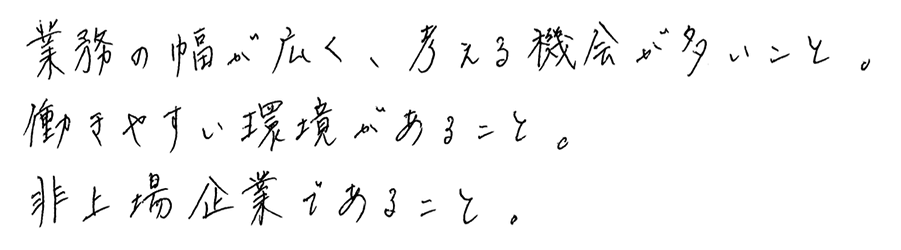 業務の幅が広く、考える機会が多いこと。
働きやすい環境があること。
非上場企業であること。